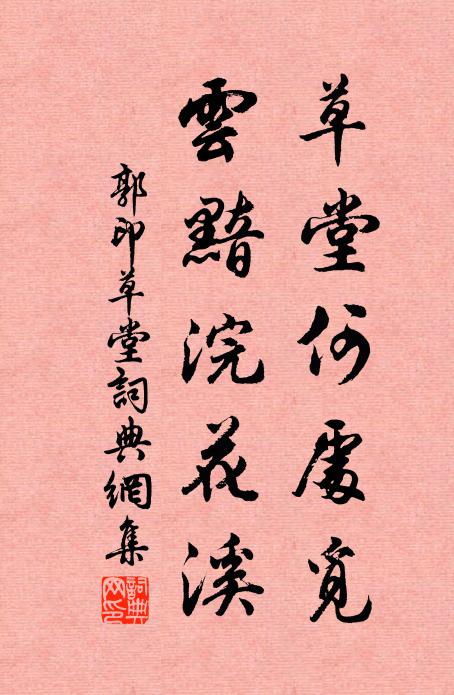 草堂何處覓
雲黯浣花溪
郭印草堂詞典網集
詞典网印